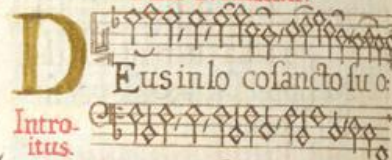 DEus in lo co sancto su o:
Intro-
itus.